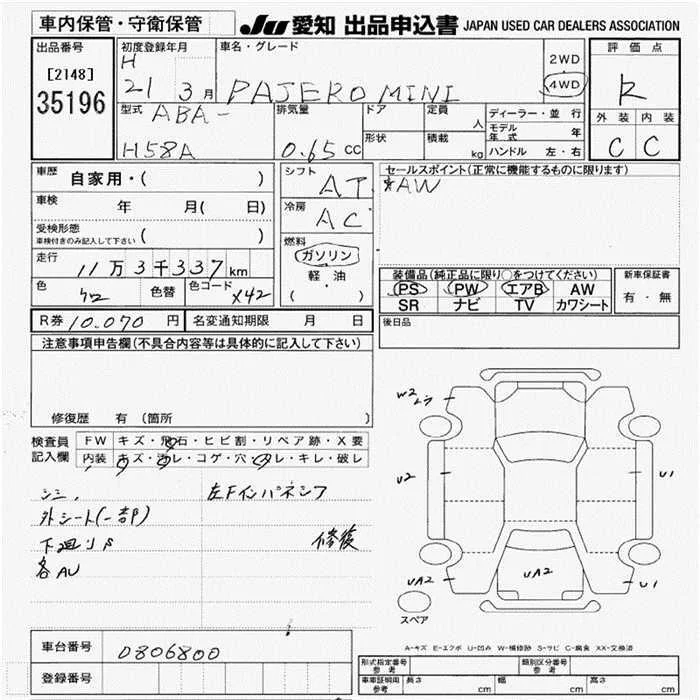 車内保管・守衛保管
JU 愛知 出品申込書 JAPAN USED CAR DEALERS ASSOCIATION
出品番号
[2148]
35196
初度登録年月
H
21 3 月
車名・グレード
PAJERO MINI
2WD
4WD
評価点
R
外装 内装
C C
型式
ABA-
H58A
排気量
0.65 cc
ドア
形状
定員
人
積載
kg
ディーラー・並行
モデル年式 年
ハンドル 左・右
車歴
自家用・( )
車検
年 月( 日)
受検形態
車検付きのみ記入して下さい ( )
走行
11万3千337 km
色
色替
色コード
X42
シフト
AT
冷房
AC
燃料
ガソリン
軽油
( ・ )
セールスポイント(正常に機能するものに限ります)
AW
装備品(純正品に限り○をつけてください)
PS PW エアB AW
SR ナビ TV カワシート
新車保証書
有・無
後日品
R券 10.070 円
名変通知期限 月 日
注意事項申告欄(不具合内容等は具体的に記入して下さい)
修復歴 有 (箇所 )
検査員
記入欄
FW キズ・飛石・ヒビ割・リペア跡・X要
内装 キズ・汚レ・コゲ・穴・スレ・キレ・破レ
左Fインパネシワ
外シート(一部)
下廻りS
修復
各AU
W2
U2
UA2
UA2
U1
U1
スペア
A-キズ E-エクボ U-凹み W-補修跡 S-サビ C-腐食 XX-交換済
車台番号
0806800
登録番号
形式指定番号
参考
類別区分番号
参考
車庫証明用
参考
長さ cm
幅 cm
高さ cm